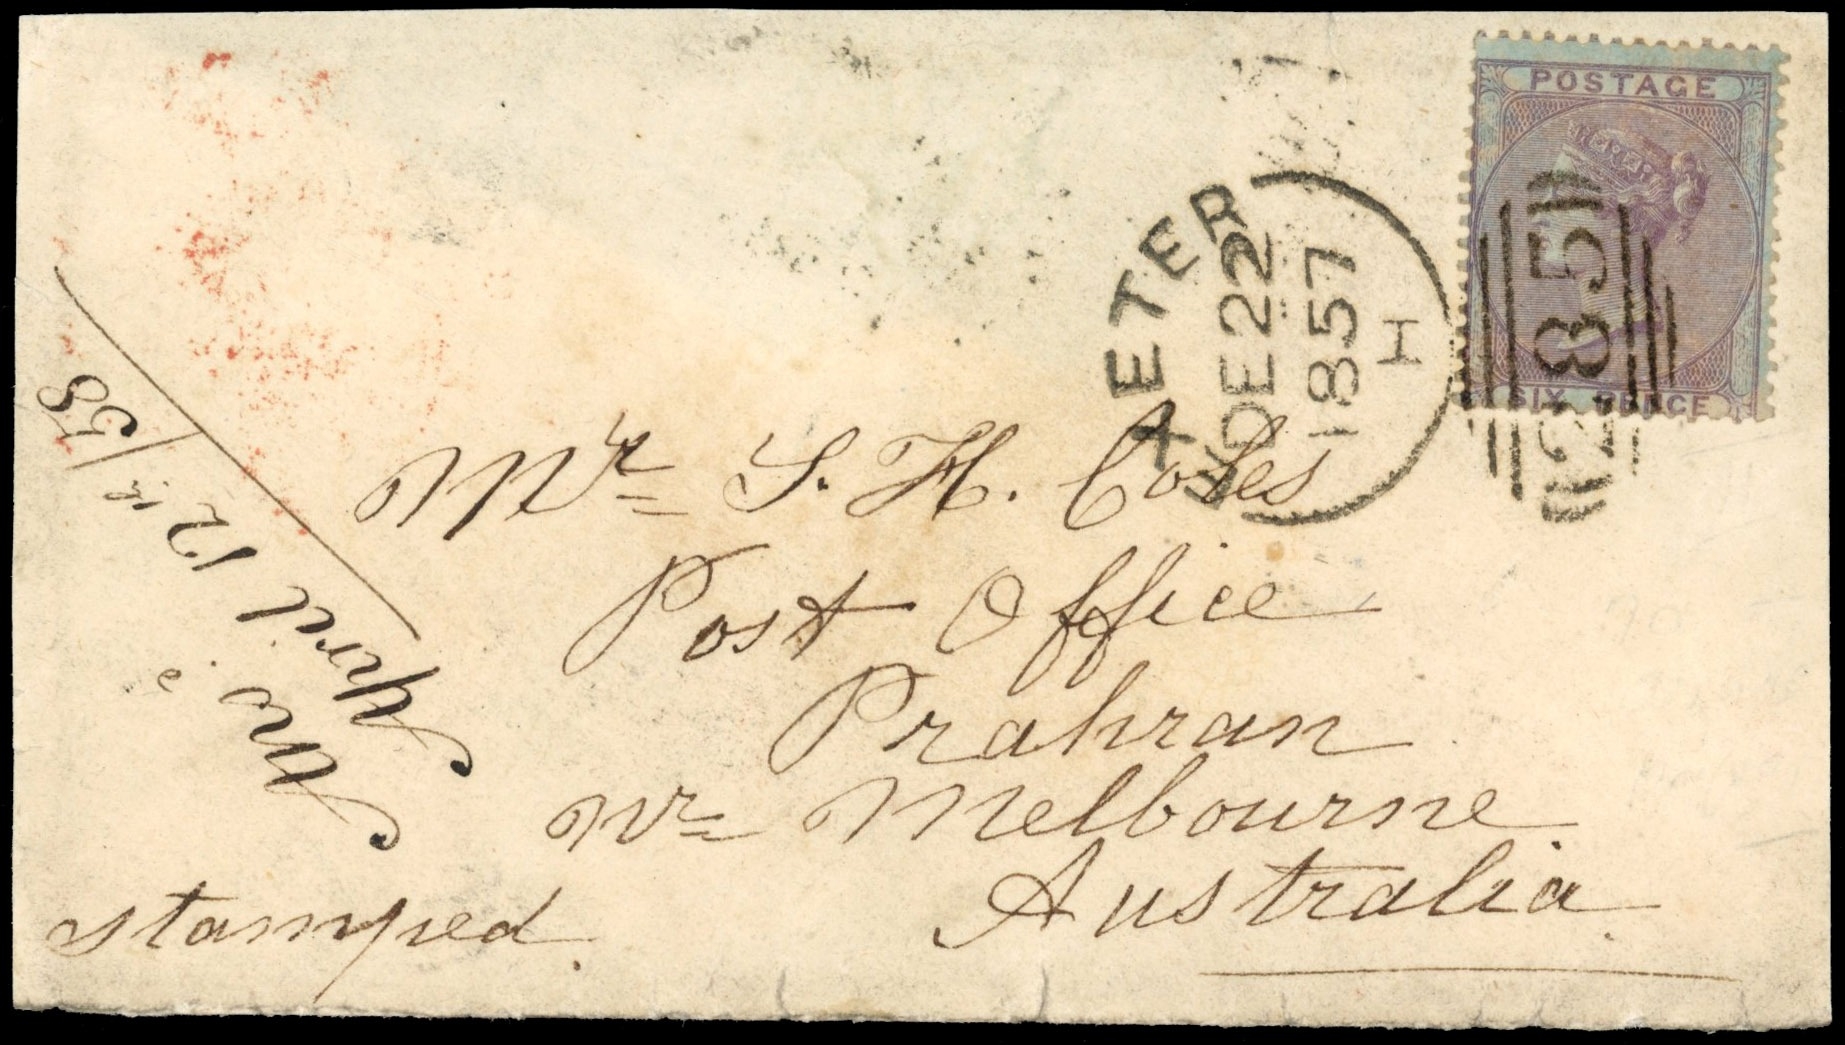 POSTAGE
SIX PENCE
285
EXETER
DE 22
1857
H
Mr S. H. Coles
Post Office
Prahran
Nr Melbourne
Australia
stamped.
April 12th/58